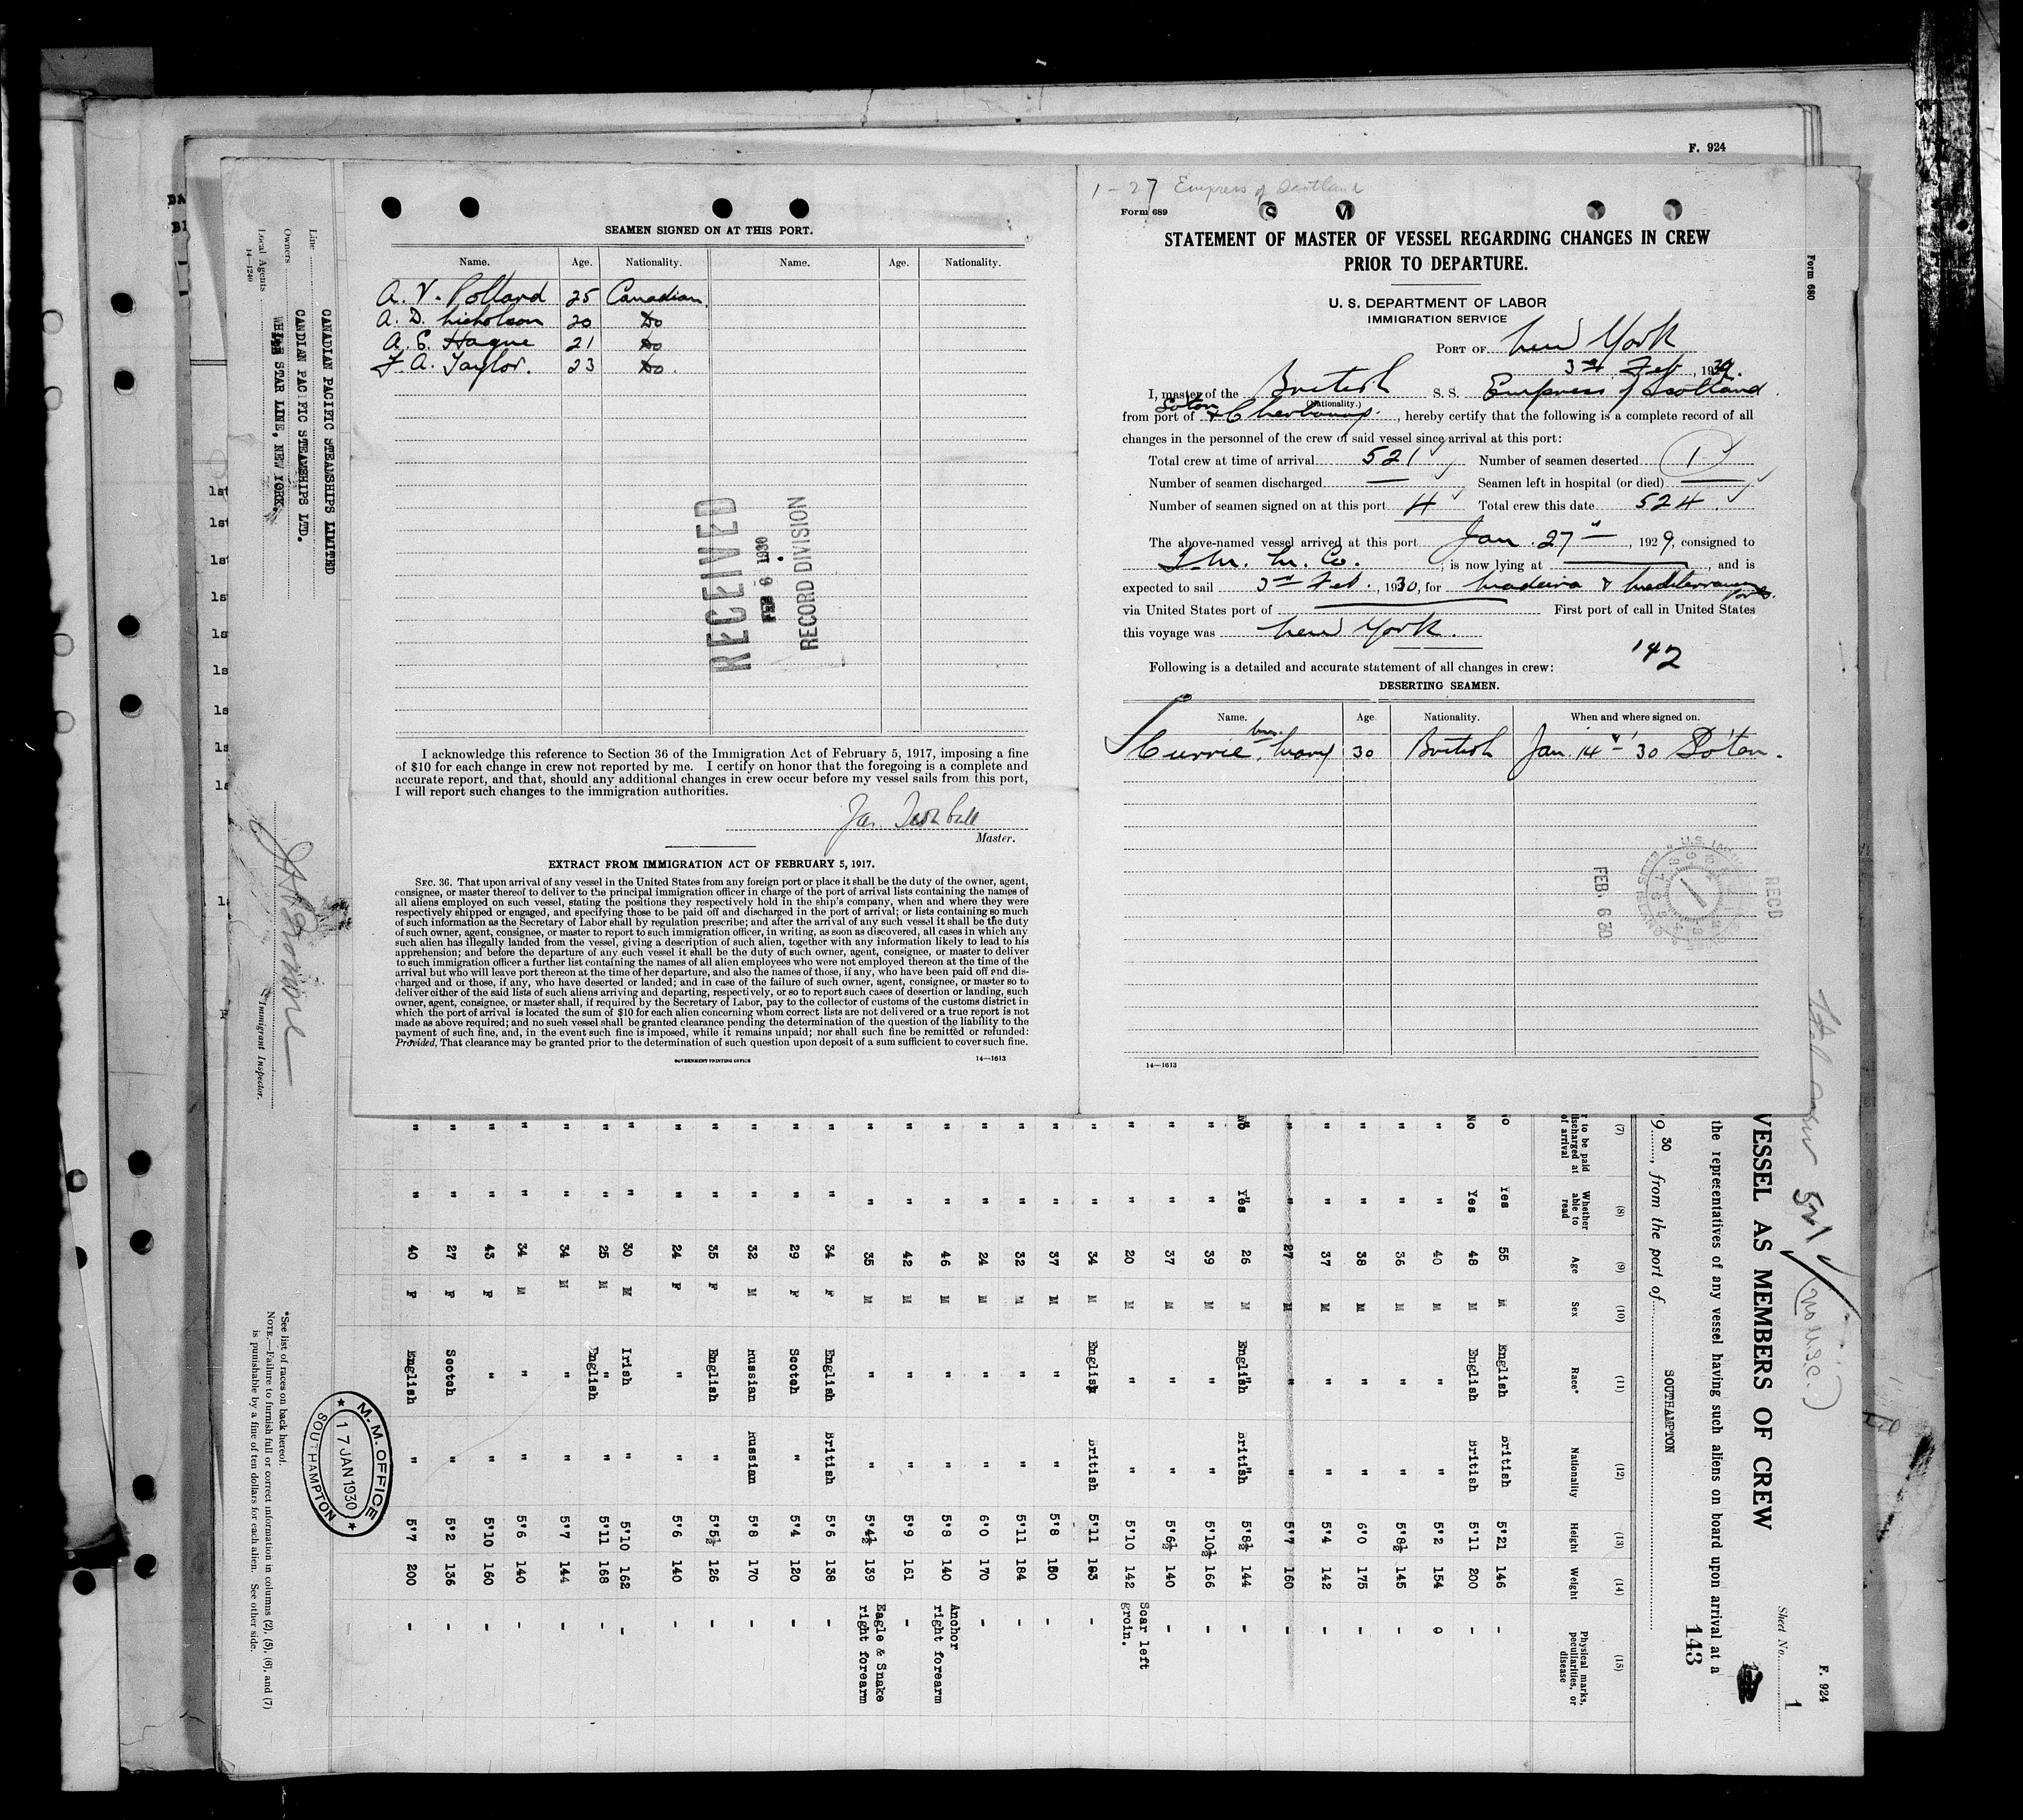 F. 924
SEAMEN SIGNED ON AT THIS PORT.
Name. Age. Nationality. Name. Age. Nationality.
A. V. Pollard 25 Canadian
A. D. Nicholson 20 Do
A. E. Hague 21 Do
F. A. Taylor. 23 Do.
RECEIVED
FEB 6 1930
RECORD DIVISION
I acknowledge this reference to Section 36 of the Immigration Act of February 5, 1917, imposing a fine
of $10 for each change in crew not reported by me. I certify on honor that the foregoing is a complete and
accurate report, and that, should any additional changes in crew occur before my vessel sails from this port,
I will report such changes to the immigration authorities.
Master.
EXTRACT FROM IMMIGRATION ACT OF FEBRUARY 5, 1917.
SEC. 36. That upon arrival of any vessel in the United States from any foreign port or place it shall be the duty of the owner, agent,
consignee, or master thereof to deliver to the principal immigration officer in charge of the port of arrival lists containing the names of
all aliens employed on such vessel, stating the positions they respectively hold in the ship's company, when and where they were
respectively shipped or engaged, and specifying those to be paid off and discharged in the port of arrival; or lists containing so much
of such information as the Secretary of Labor shall by regulation prescribe; and after the arrival of any such vessel it shall be the duty
of such owner, agent, consignee, or master to report to such immigration officer, in writing, as soon as discovered, all cases in which any
such alien has illegally landed from the vessel, giving a description of such alien, together with any information likely to lead to his
apprehension; and before the departure of any such vessel it shall be the duty of such owner, agent, consignee, or master to deliver
to such immigration officer a further list containing the names of all alien employees who were not employed thereon at the time of the
arrival but who will leave port thereon at the time of her departure, and also the names of those, if any, who have been paid off and dis-
charged and or those, if any, who have deserted or landed; and in case of the failure of such owner, agent, consignee, or master so to
deliver either of the said lists of such aliens arriving and departing, respectively, or so to report such cases of desertion or landing, such
owner, agent, consignee, or master shall, if required by the Secretary of Labor, pay to the collector of customs of the customs district in
which the port of arrival is located the sum of $10 for each alien concerning whom correct lists are not delivered or a true report is not
made as above required; and no such vessel shall be granted clearance pending the determination of the question of the liability to the
payment of such fine, and, in the event such fine is imposed, while it remains unpaid; nor shall such fine be remitted or refunded:
Provided, That clearance may be granted prior to the determination of such question upon deposit of a sum sufficient to cover such fine.
GOVERNMENT PRINTING OFFICE 14—1613
1 - 27 Empress of Scotland
Form 689
STATEMENT OF MASTER OF VESSEL REGARDING CHANGES IN CREW
PRIOR TO DEPARTURE.
U. S. DEPARTMENT OF LABOR
IMMIGRATION SERVICE
PORT OF New York
3rd Feb, 1930.
I, master of the British S. S. Empress of Scotland
(Nationality.)
from port of Soton & Cherbourg., hereby certify that the following is a complete record of all
changes in the personnel of the crew of said vessel since arrival at this port:
Total crew at time of arrival 521 Number of seamen deserted 1
Number of seamen discharged — Seamen left in hospital (or died) —
Number of seamen signed on at this port 4 Total crew this date 524.
The above-named vessel arrived at this port Jan. 27th, 1929, consigned to
I. M. M. Co., is now lying at —, and is
expected to sail 3rd Feb., 1930, for Madeira & Mediterranean Ports.
via United States port of — First port of call in United States
this voyage was New York.
142
Following is a detailed and accurate statement of all changes in crew:
DESERTING SEAMEN.
Name. Age. Nationality. When and where signed on.
Currie, Mary 30 British Jan. 14th '30 So'ton.
FEB. 6 30
RECD
14—1613
Form 680
Line CANADIAN PACIFIC STEAMSHIPS LIMITED
Owners CANDIAN PACIFIC STEAMSHIPS LTD.
Local Agents WHITE STAR LINE, NEW YORK.
14—1240
Immigrant Inspector.
F. 924
Sheet No. 1
VESSEL AS MEMBERS OF CREW
143
the representatives of any vessel having such aliens on board upon arrival at a
30, from the port of SOUTHAMPTON
521 (no U.S.C.)
(7) (8) (9) (10) (11) (12) (13) (14) (15)
Whether able to read Age Sex Race* Nationality Height Weight Physical marks, peculiarities, or disease
No Yes 55 M English British 5'21 146 -
No Yes 48 M English British 5'11 200 -
" " 40 M " " 5'2 154 9
" " 36 M " " 5'8½ 145 -
" " 38 M " " 6'0 175 -
" " 37 M " " 5'4 142 -
" " 27 M " " 5'7 160 -
No Yes 26 M English British 5'8½ 144 -
" " 39 M " " 5'10½ 166 -
" " 37 M " " 5'6½ 140 -
" " 20 M " " 5'10 142 Scar left groin.
" " 34 M English British 5'11 183 -
" " 37 M " " 5'8 150 -
" " 32 M " " 5'11 184 -
" " 24 M " " 6'0 170 -
" " 46 M " " 5'8 140 Anchor right forearm
" " 42 M " " 5'9 161 -
" " 35 M " " 5'4½ 139 Eagle & Snake right forearm
" " 34 F English British 5'6 138 -
" " 29 F Scotch " 5'4 120 -
" " 32 M Russian Russian 5'8 170 -
" " 35 F English " 5'5½ 126 -
" " 24 F " " 5'6 140 -
" " 30 M Irish " 5'10 162 -
" " 25 M English " 5'11 168 -
" " 34 M " " 5'7 144 -
" " 34 M " " 5'6 140 -
" " 43 F " " 5'10 160 -
" " 27 F Scotch " 5'2 136 -
" " 40 F English " 5'7 200 -
M.M. OFFICE
17 JAN 1930
SOUTHAMPTON
*See list of races on back hereof.
NOTE.—Failure to furnish full or correct information in columns (2), (5), (6), and (7)
is punishable by a fine of ten dollars for each alien. See other side.